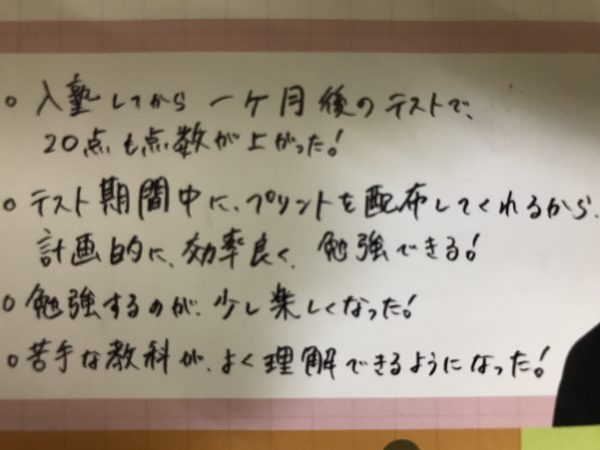 ○ 入塾してから 一ケ月後のテストで、
20点も点数が上がった!
○ テスト期間中に、プリントを配布してくれるから、
計画的に、効率良く、勉強できる!
○ 勉強するのが、少し楽しくなった!
○ 苦手な教科が、よく理解できるようになった!